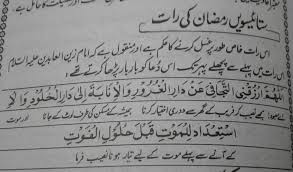 ستائیسویں رمضان کی رات
اس رات خاص طور پر غسل کرنے کا حکم ہے اور منقول ہے کہ امام زین العابدین علیہ السلام
اس رات میں پہلے سے پچھلے پہر تک اس دعا کو بار بار پڑھا کرتے تھے
اَللّٰهُمَّ ارْزُقْنِی التَّجَافِیَ عَنْ دَارِ الْغُرُوْرِ وَالْاِنَابَةَ اِلٰی دَارِ الْخُلُوْدِ وَالْاِ
اے معبود! مجھے فریب کے گھر سے دوری اختیار کرنا ہمیشہ کے مسکن کی طرف لوٹ کے جانا اور موت
سْتِعْدَادَ لِلْمَوْتِ قَبْلَ حُلُوْلِ الْفَوْتِ
کے آنے سے پہلے موت کے لیے تیار ہونا نصیب فرما